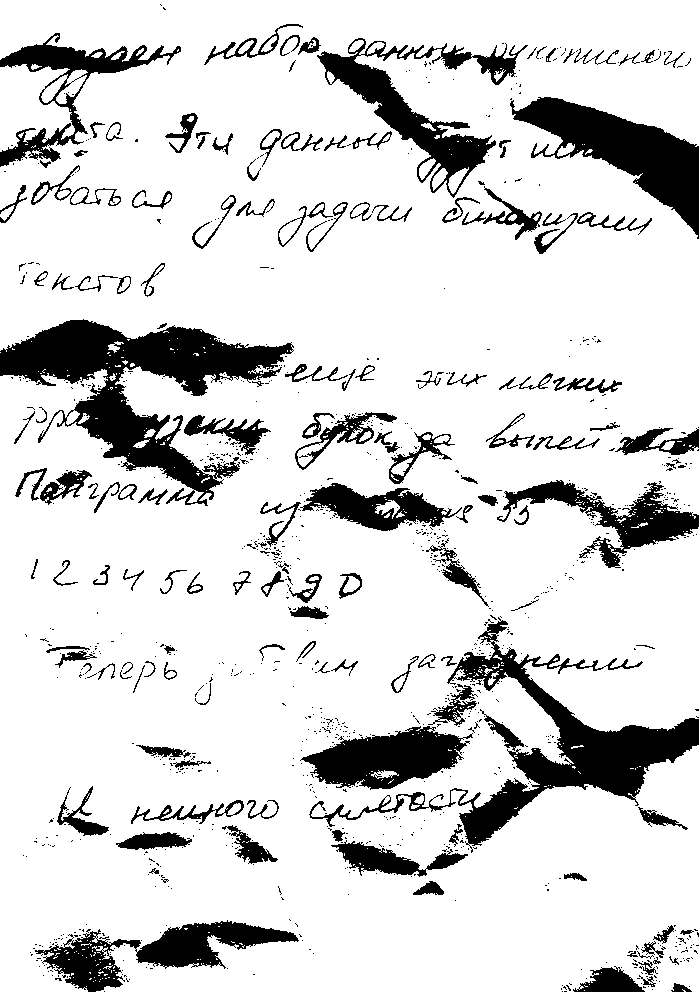 Создаем набор данных рукописного
текста. Эти данные будут
зоваться для задачи бинаризации
текстов
ещё этих мягких
булок, да выпей
Панграмма 33
1 2 3 4 5 6 7 8 9 0
Теперь добавим загрязнений
И немного смятости